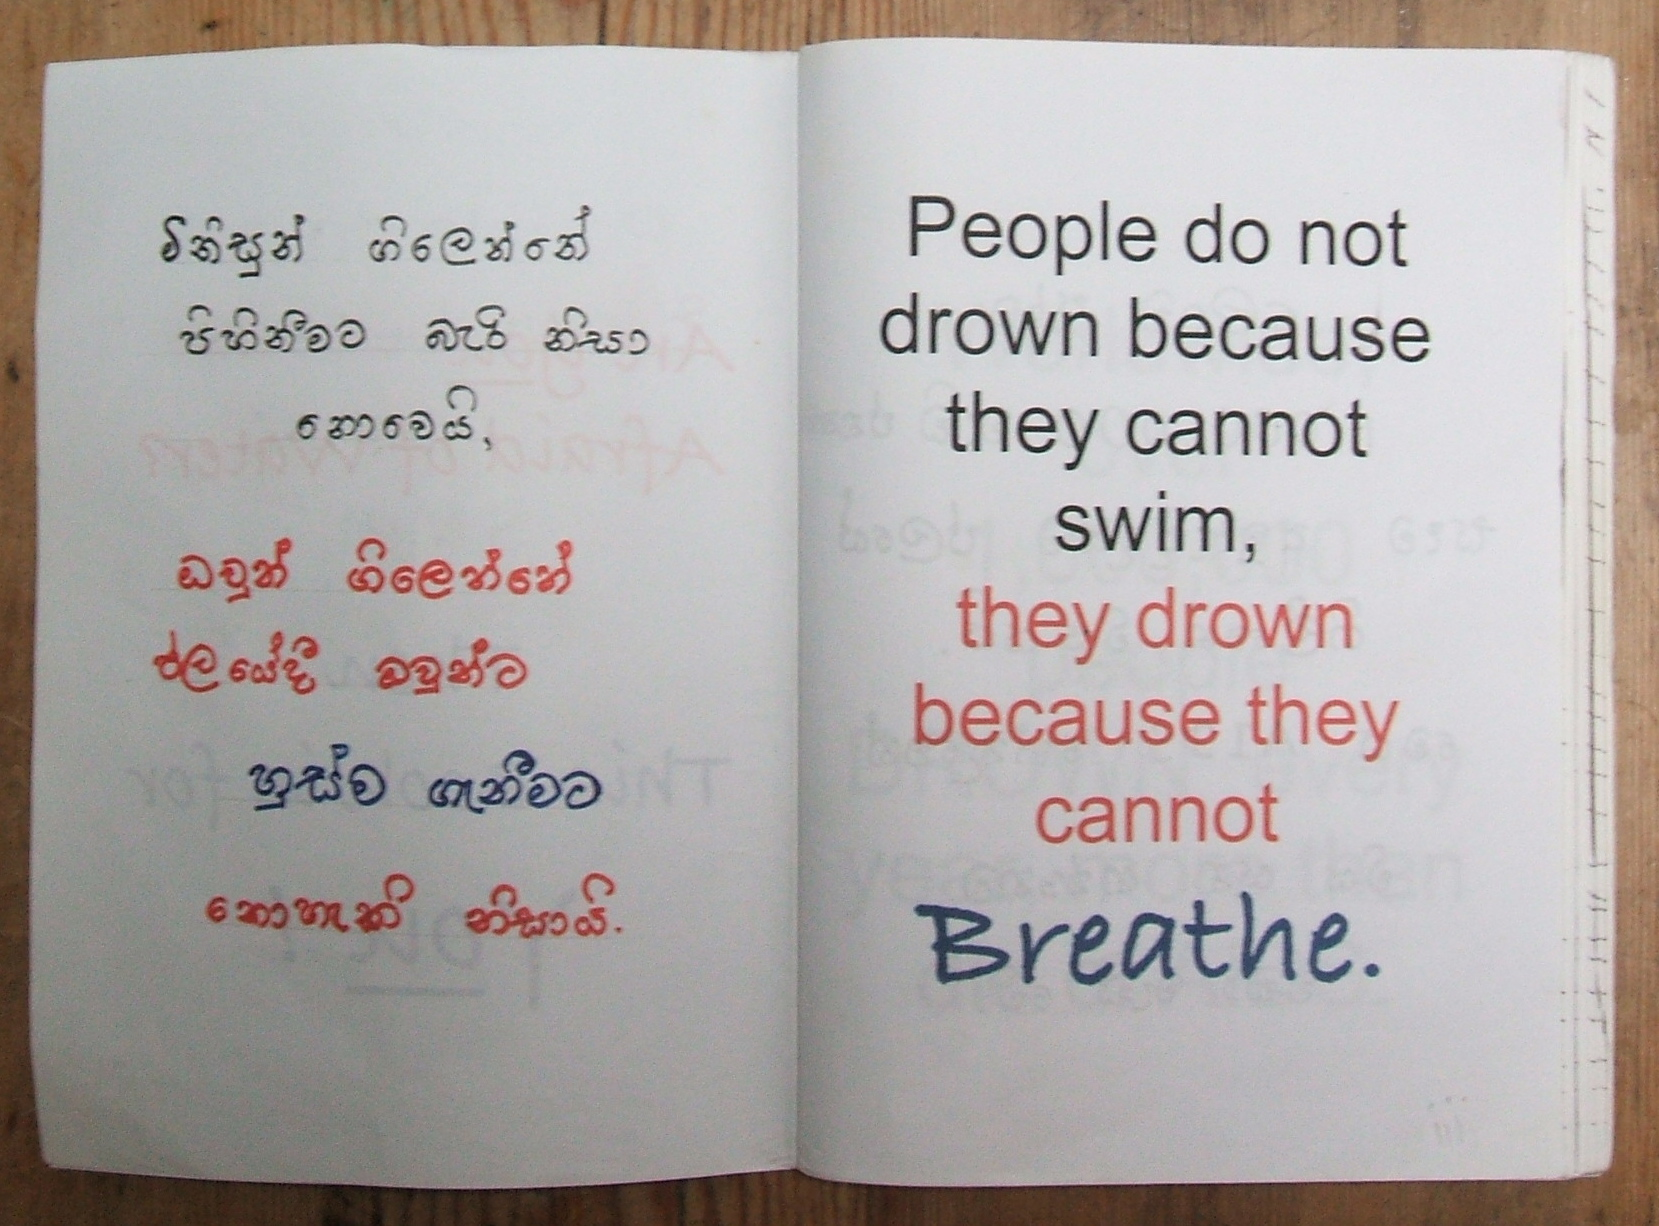 මිනිසුන් ගිලෙන්නේ
පිහිනීමට බැරි නිසා
නොවෙයි,
ඔවුන් ගිලෙන්නේ
ජලයේදී ඔවුන්ට
හුස්ම ගැනීමට
නොහැකි නිසායි.
People do not
drown because
they cannot
swim,
they drown
because they
cannot
Breathe.